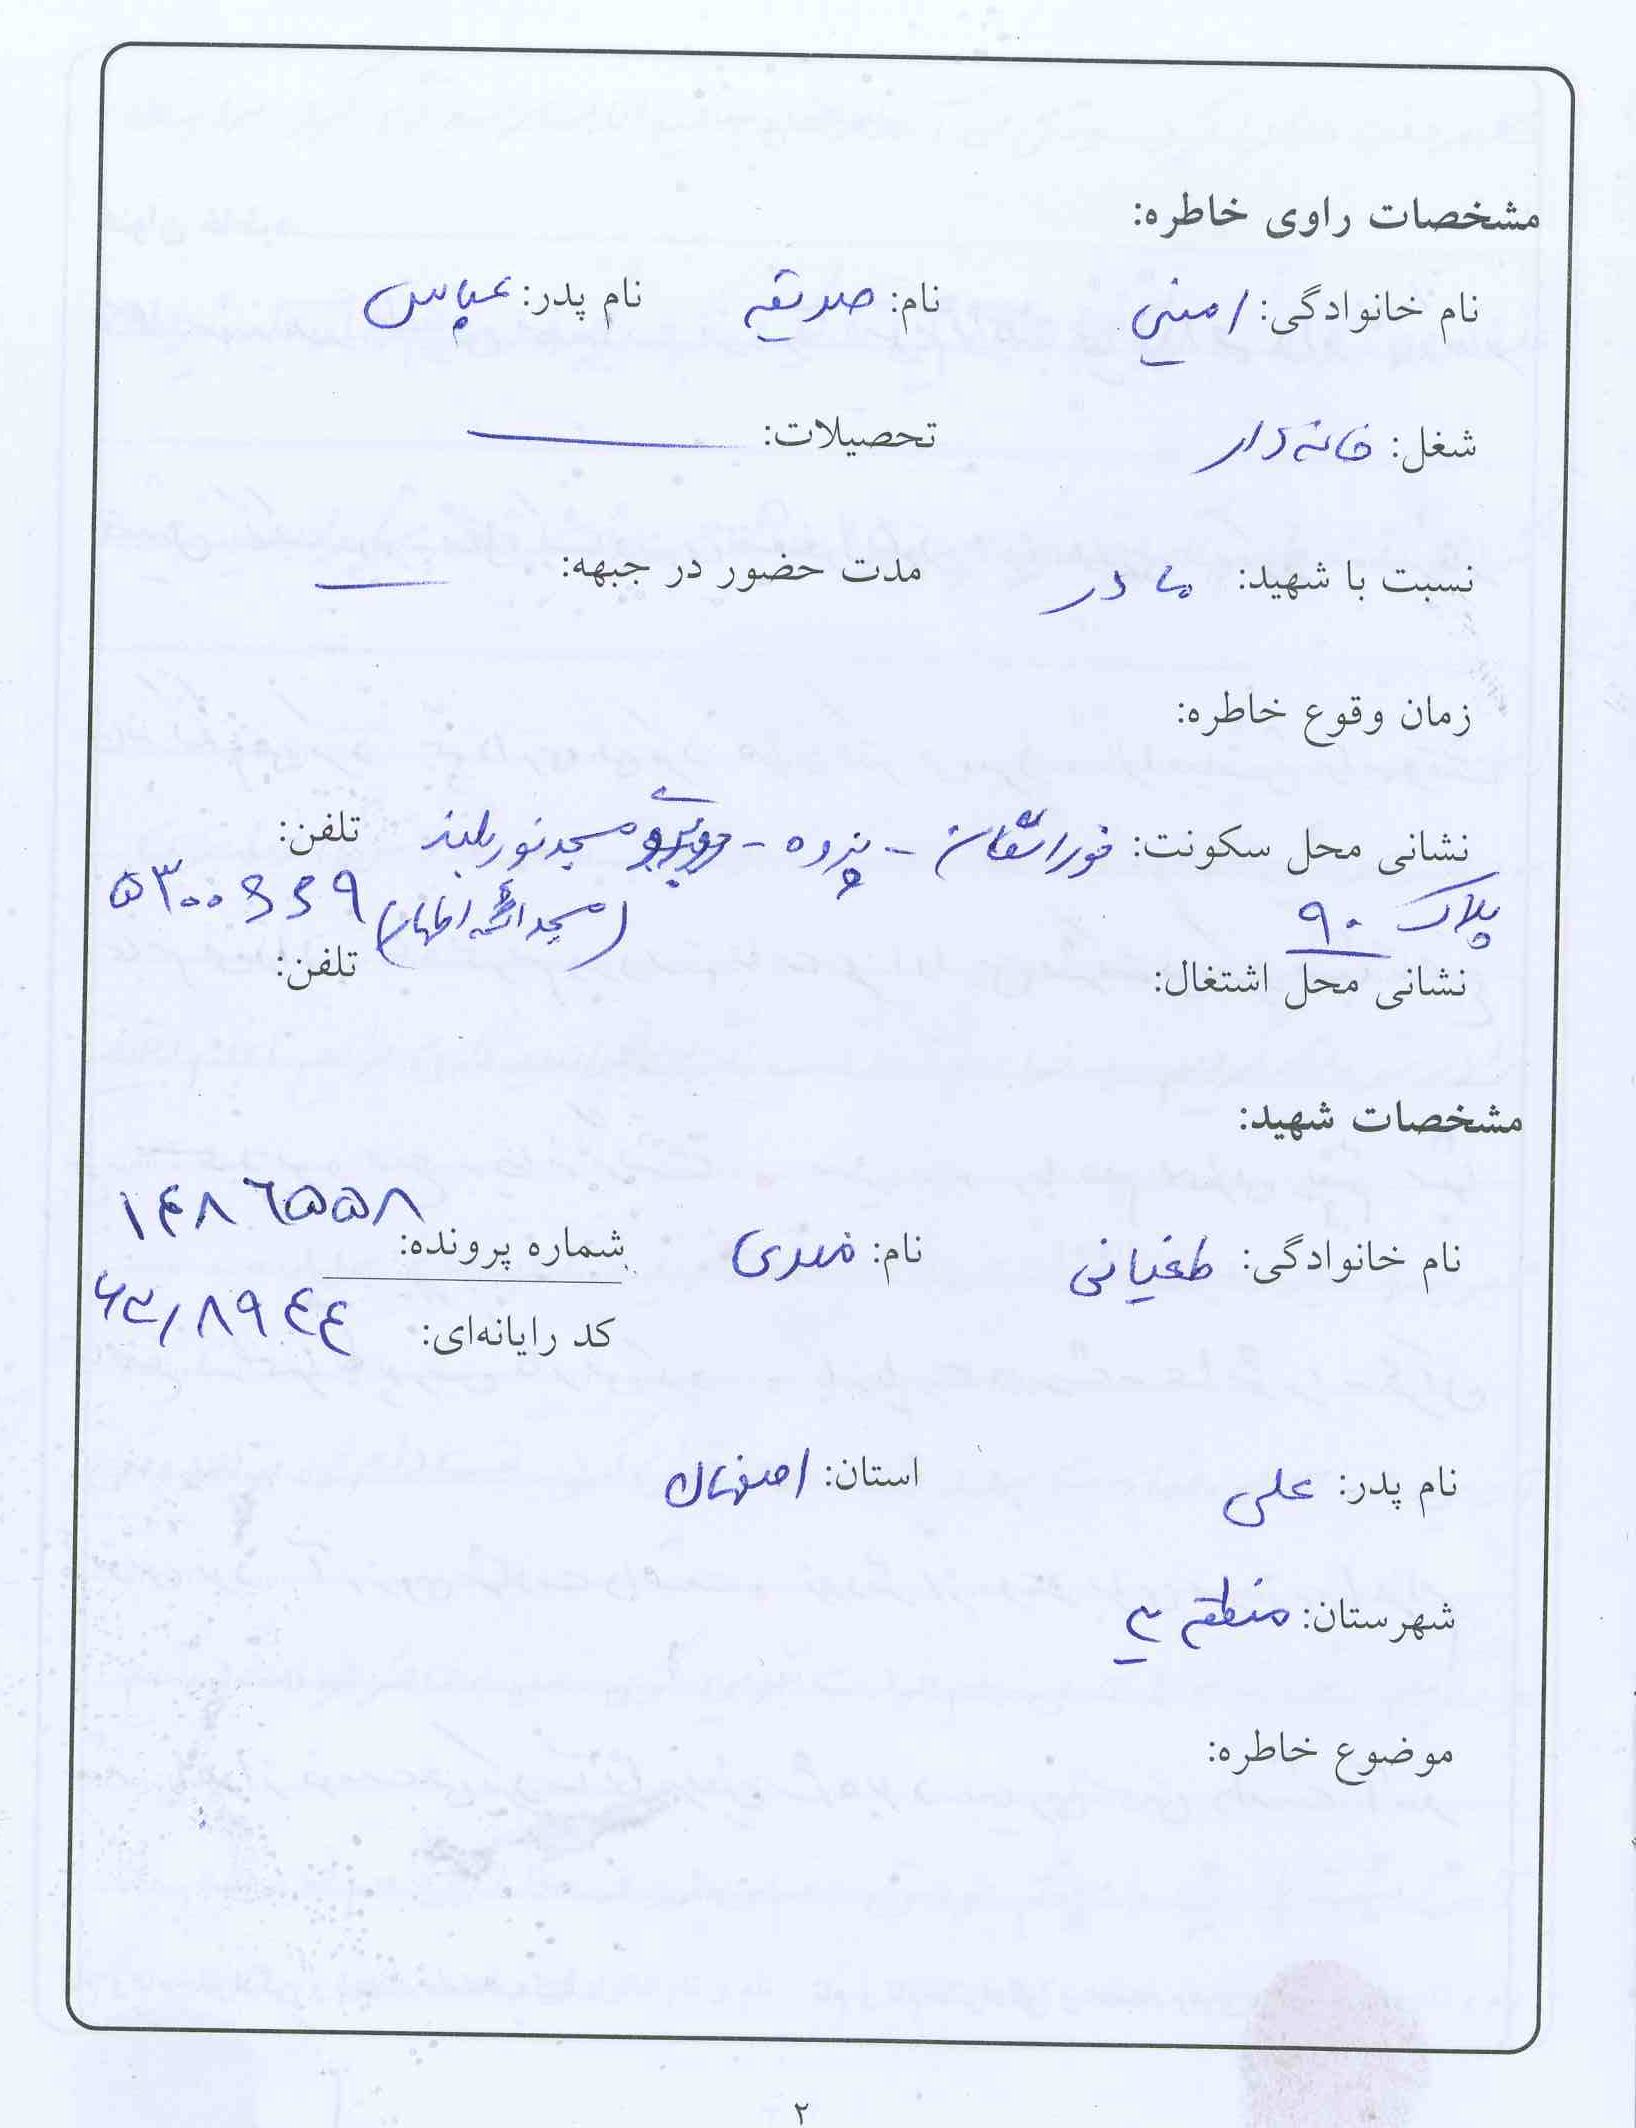 مشخصات راوی خاطره:
نام خانوادگی: امینی نام: صدیقه نام پدر: عباس
شغل: خانه دار تحصیلات: ــــ
نسبت با شهید: مادر مدت حضور در جبهه: ــــ
زمان وقوع خاطره:
نشانی محل سکونت: خوراسگان - پزوه - روبروی مسجد نور پلاک ۹۰ تلفن:
(مسجد ائمه اطهار)
نشانی محل اشتغال: تلفن:
مشخصات شهید:
نام خانوادگی: طغیانی نام: مهدی شماره پرونده: ۱۴۸۶۵۵۸
کد رایانه‌ای:
نام پدر: علی استان: اصفهان
شهرستان: منطقه ۳
موضوع خاطره:
۲